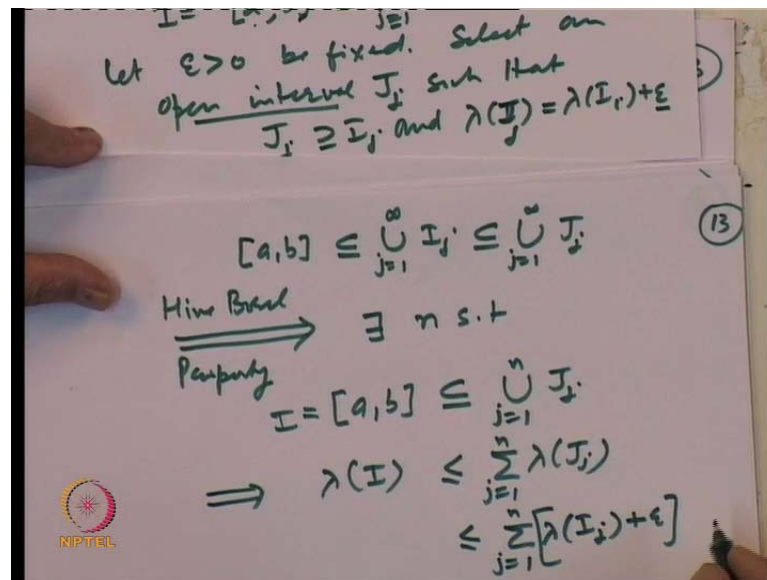 let ε>0 be fixed. Select an
open interval J_j such that
J_j ⊇ I_j and λ(I_j) = λ(I_j)+ε
13
[a,b] ⊆ ⋃_{j=1}^{∞} I_j ⊆ ⋃_{j=1}^{∞} J_j
Hine Borel
⟹ ∃ n s.t
Property
I = [a,b] ⊆ ⋃_{j=1}^{n} J_j
⟹ λ(I) ≤ ∑_{j=1}^{n} λ(J_j)
≤ ∑_{j=1}^{n} [λ(I_j)+ε]
NPTEL